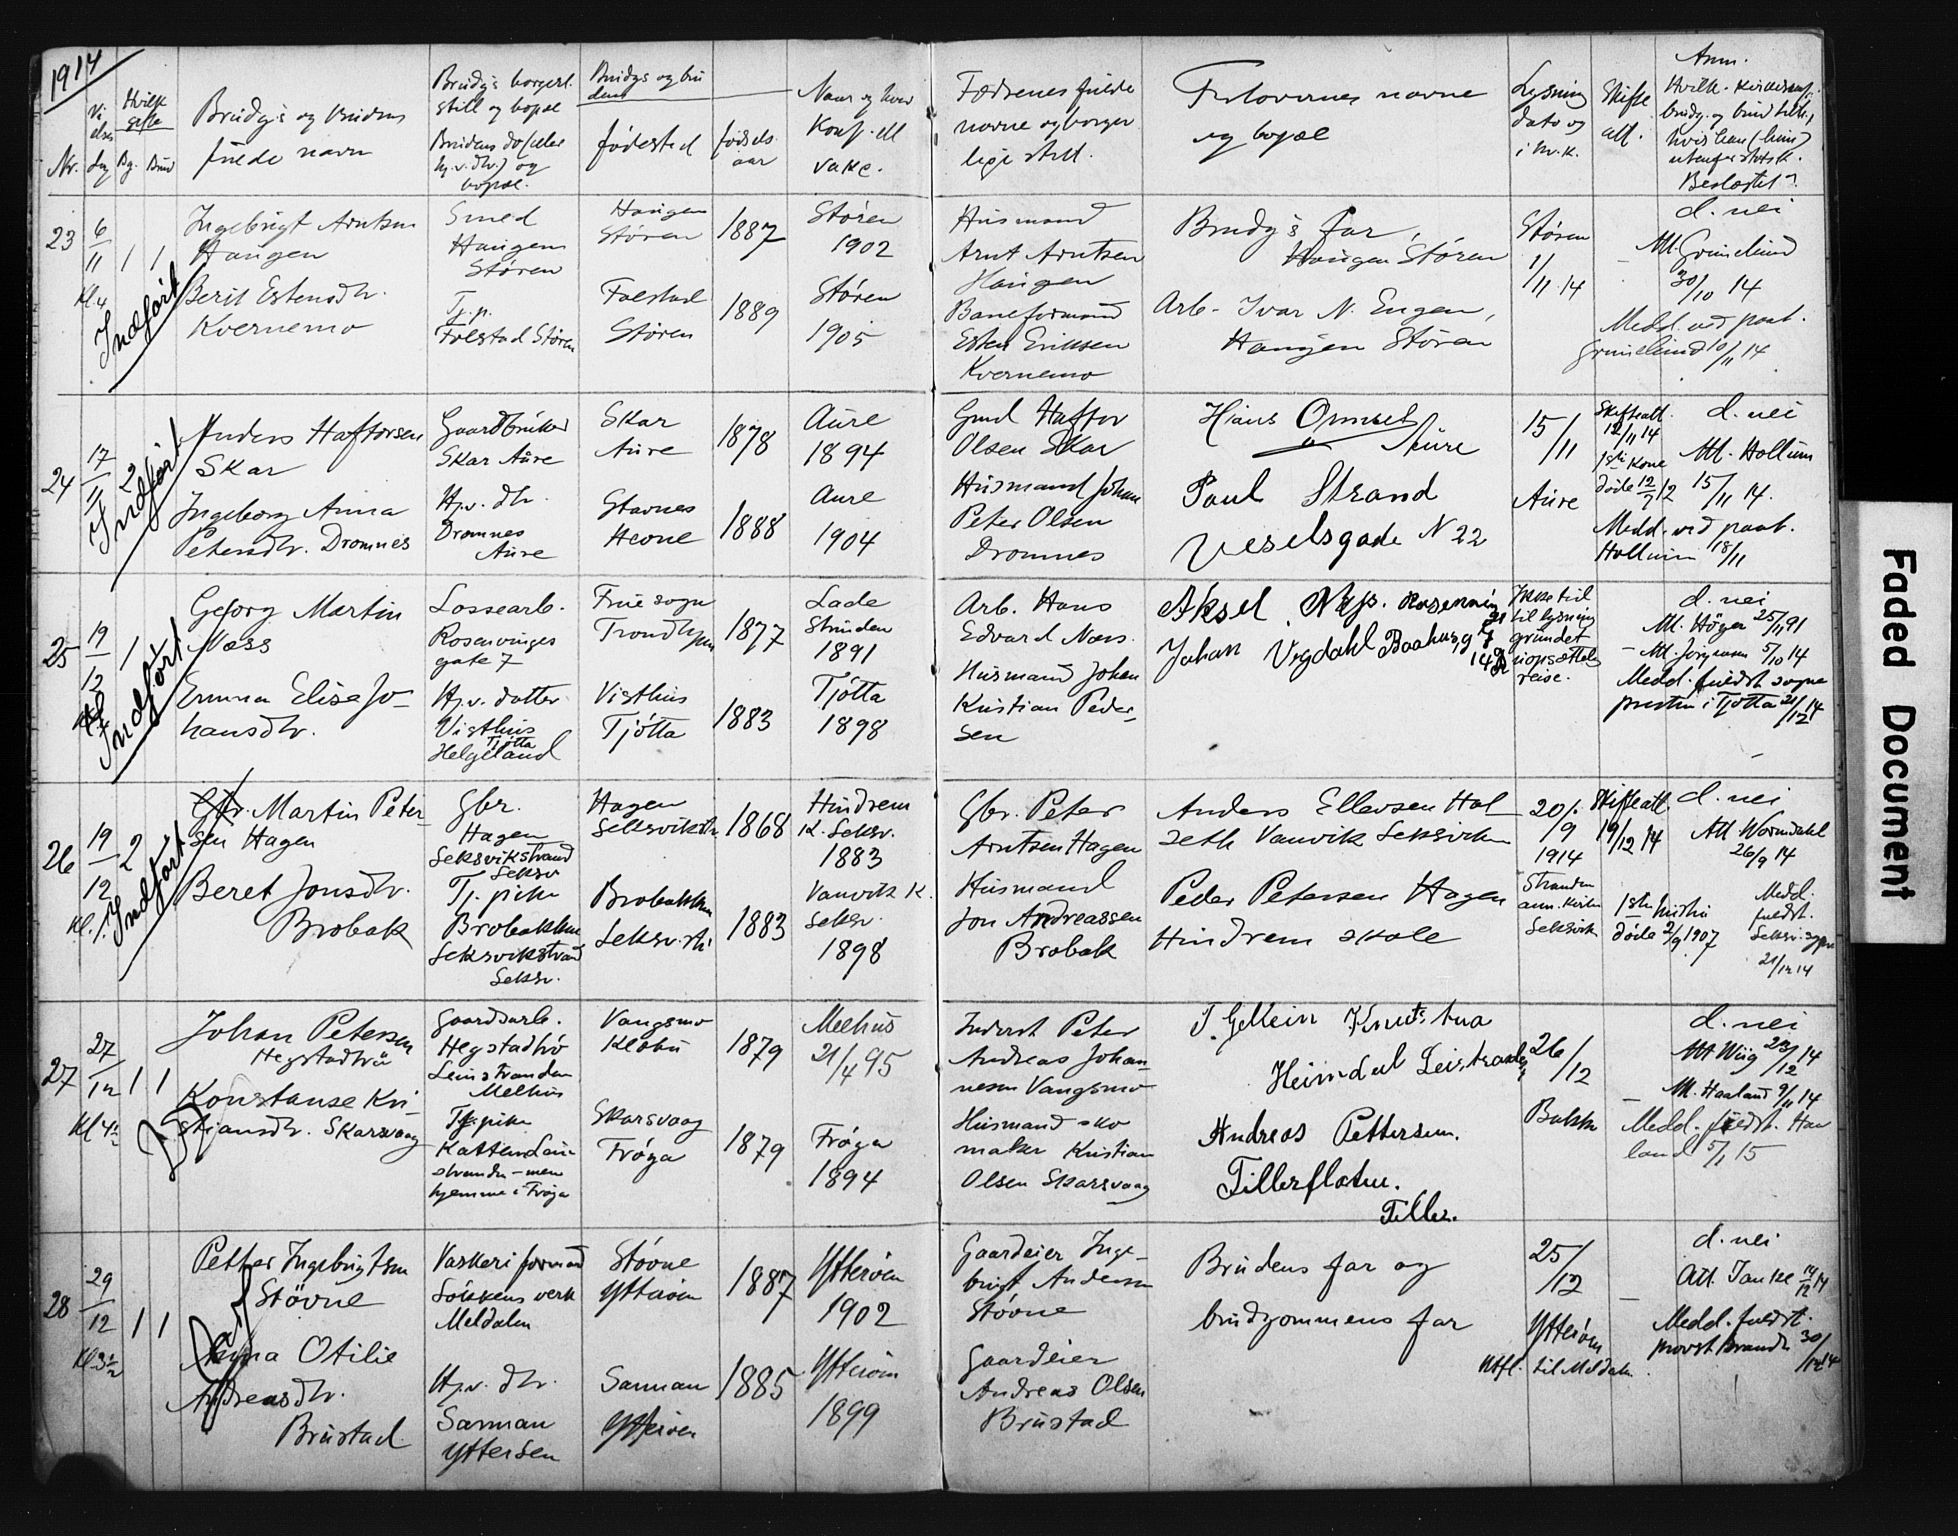 1914
Nr.
Vi
elses
dag
Hvilk
gifte
Bg. Brud
Brudg.s og brudens
fulde navn
Brudg.s borgerl.
still og bopæl
Brudens do (eller
hj.v.dtr.) og
bopæl.
Brudg.s og bru
dens
fødested
fødsels
aar
Naar og hvor
Konf. ell
vakc.
Fædrenes fulde
navne og borger
lige still.
Forlovernes navne
og bopæl
Lysning
dato og
i hv. k.
Skifte
att.
Anm.
Beslægtet?
23
6
11
Kl 4
1 1
Indført
Ingebrigt Arntsen
Haugen
Berit Estensdtr.
Kvernemo
Smed
Haugen
Støren
Tj.p.
Folstad Støren
Haugen
Støren
Folstad
Støren
1887
1889
Støren
1902
Støren
1905
Husmand
Arnt Arntsen
Haugen
Baneformand
Esten Eriksen
Kvernemo
Brudg.s far,
Haugen Støren
Arb. Ivar N. Engen,
Haugen Støren
Støren
1/
/11 14
-
d. nei
Att. Grimelund
30/10 14
Medd. ved paat.
Grimelund 10/11 14
24
17
11
2
Indført
Anders Haftorsen
Skar
Ingeborg Anna
Petersdtr. Dromnes
Gaardbruker
Skar Aure
Hj.v. dtr.
Dromnes
Aure
Skar
Aure
Stavnes
Hevne
1878
1888
Aure
1894
Aure
1904
Gmd Haftor
Olsen Skar
Husmand Johan
Peter Olsen
Dromnes
Hans Omset
" Aure
Paul Strand
Veselsgade N 22
15/
/11
Aure
Skifteatt.
12/11 14
1ste Kone
døde 12/7 12
d. nei
Att. Hollum
15/11 14.
Medd. ved paat.
Hollum 18/11
25
19
12
1
Indført
Georg Martin
Næss
Emma Elise Jo-
hansdtr.
Lossearb.
Rosenvinges
gate 7
Hj.v. datter
Visthus
Tjøtta
Helgeland
Frue sogn
Trondhjem
Visthus
Tjøtta
1877
1883
Lade
Strinden
1891
Tjøtta
1898
Arb. Hans
Edvard Næss.
Husmand Johan
Kristian Peder-
sen
Johan Vegdahl Baahusg
14
Ikke tid
til lysning
grundet
uopsættelig
reise.
d. nei
Att. Høyer 25/11 91
- Att. Jørgensen 5/10 14
Medd. fuldst. sogne
presten i Tjøtta 21/12 14
26
19
12
Kl. 1.
2
Indført
Gbr. Martin Peter-
sen Hagen
Beret Jonsdtr.
Brobak
Gbr.
Hagen
Seksvikstrand
Seksv
Tj. pike
Brobakken
Seksvikstrand
Seksv.
Hagen
Seksvikstr
Brobakken
Seksv. str.
1868
1883
Hindrem
K. Seksv.
1883
Vanvik K.
Seksv.
1898
Gbr. Peter
Arntsen Hagen
Husmand
Jon Andreassen
Brobak
Anders Ellevsen Hol
seth Vanvik Seksviken
Peder Petersen Hagen
Hindrem skole
20/.
/9
1914
Stranden
ann. kirke
Seksvik
Skifteatt.
19/12 14
1ste hustru
døde 2/9 1907
d. nei
Att Wormdahl
26/9 14
Medd.
fuldst.
Seksv. sogn
21/12 14
27
27
12
Kl 4½
1 1
Johan Petersen
Hegstadtrø
Konstanse Kri-
stiansdtr. Skarsvaag
Gaardsarb.
Hegstadtrø
Leinstranden
Melhus
Tj. pike
Kattem Lein-
stranden - men
hjemme i Frøya
Vangsmo
Klæbu
Skarsvaag
Frøya
1879
1879
Melhus
21/4 95
Frøya
1894
Inderst Peter
Andreas Johan-
nesen Vangsmo
Husmand sko
maker Kristian
Olsen Skarsvaag
Heimdal Leistranden
Andreas Pettersen.
Tillerflaten.
Tiller.
26/
/12
d. nei
Att Wiig 23/12 14
- Att. Haaland 9/11 14
Medd. fuldst. Haa
land 5/1 15
28
29
12
Kl 3½
1 1
Petter Ingebrigtsen
Støvne
Anna Otilie
Andreasdtr.
Brustad
Vaskeri formand
Løkkens verk
Meldalen
Hj.v. dtr.
Sannan
Ytterøen
Støvne
Ytterøen
Sannan
Ytterøen
1887
1885
Ytterøen
1902
Ytterøen
1899
Gaardeier Inge-
brigt Andersen
Støvne
Gaardeier
Andreas Olsen
Brustad
Brudens far og
brudgommens far
25/
/12
Ytterøen
Utfl. til Meldalen
-
d. nei
Att. Tanke 14/12 14
Medd. fuldst.
provst Brandt 30/12 14
Faded Document